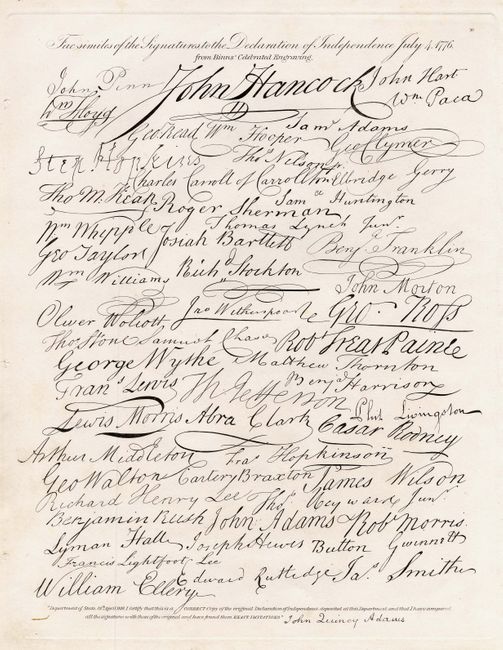 Fac similes of the Signatures to the Declaration of Independence July 4, 1776.
from Binns' Celebrated Engraving.
John Penn John Hancock John Hart
Wm Floyd Wm Paca
Geo Read Wm Hooper Saml Adams Geo Clymer
Step. Hopkins Thos Nelson jr.
Charles Carroll of Carrollton Elbridge Gerry
Tho M:Kean Roger Sherman Saml Huntington
Wm Whipple Thomas Lynch Junr.
Geo Taylor Josiah Bartlett Benj. Franklin
Wm Williams Richd Stockton
John Morton
Oliver Wolcott Jno Witherspoon Geo. Ross
Thos Stone Samuel Chase Robt Treat Paine
George Wythe Matthew Thornton
Frans. Lewis Th Jefferson Benja Harrison
Lewis Morris Abra Clark Phil. Livingston
Cæsar Rodney
Arthur Middleton Fras Hopkinson
Geo Walton Carter Braxton James Wilson
Richard Henry Lee Thos. Heyward Junr.
Benjamin Rush John Adams Robt Morris
Lyman Hall Joseph Hewes Button Gwinnett
Francis Lightfoot Lee
William Ellery Edward Rutledge Jas. Smith
Department of State, 19th April 1819. I certify that this is a CORRECT copy of the original Declaration of Independence deposited at this Department, and that I have compared
all the signatures with those of the original and have found them EXACT IMITATIONS. John Quincy Adams